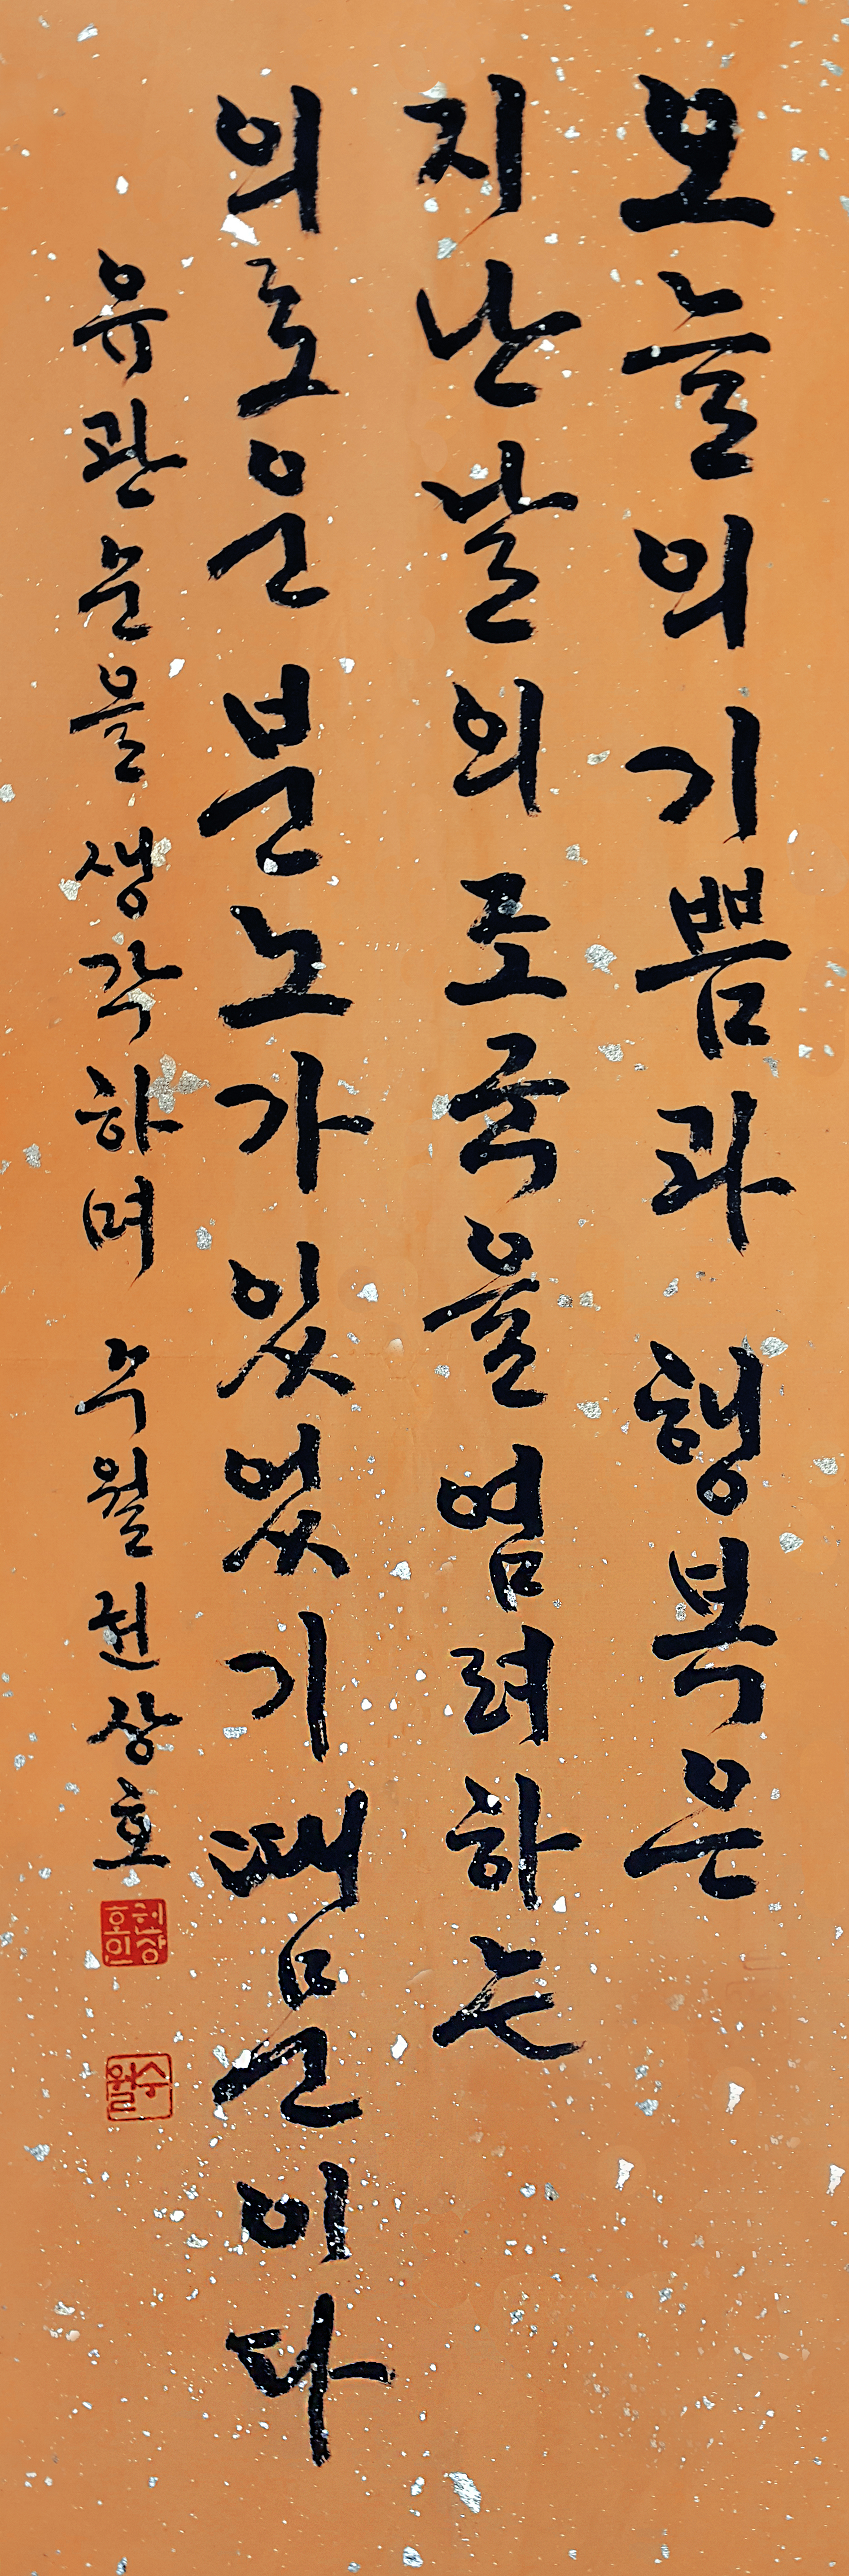 오늘의 기쁨과 행복은
지난날의 조국을 염려하는
의로운 분노가 있었기 때문이다
유관순을 생각하며 수월 권상호
권상호인
수월